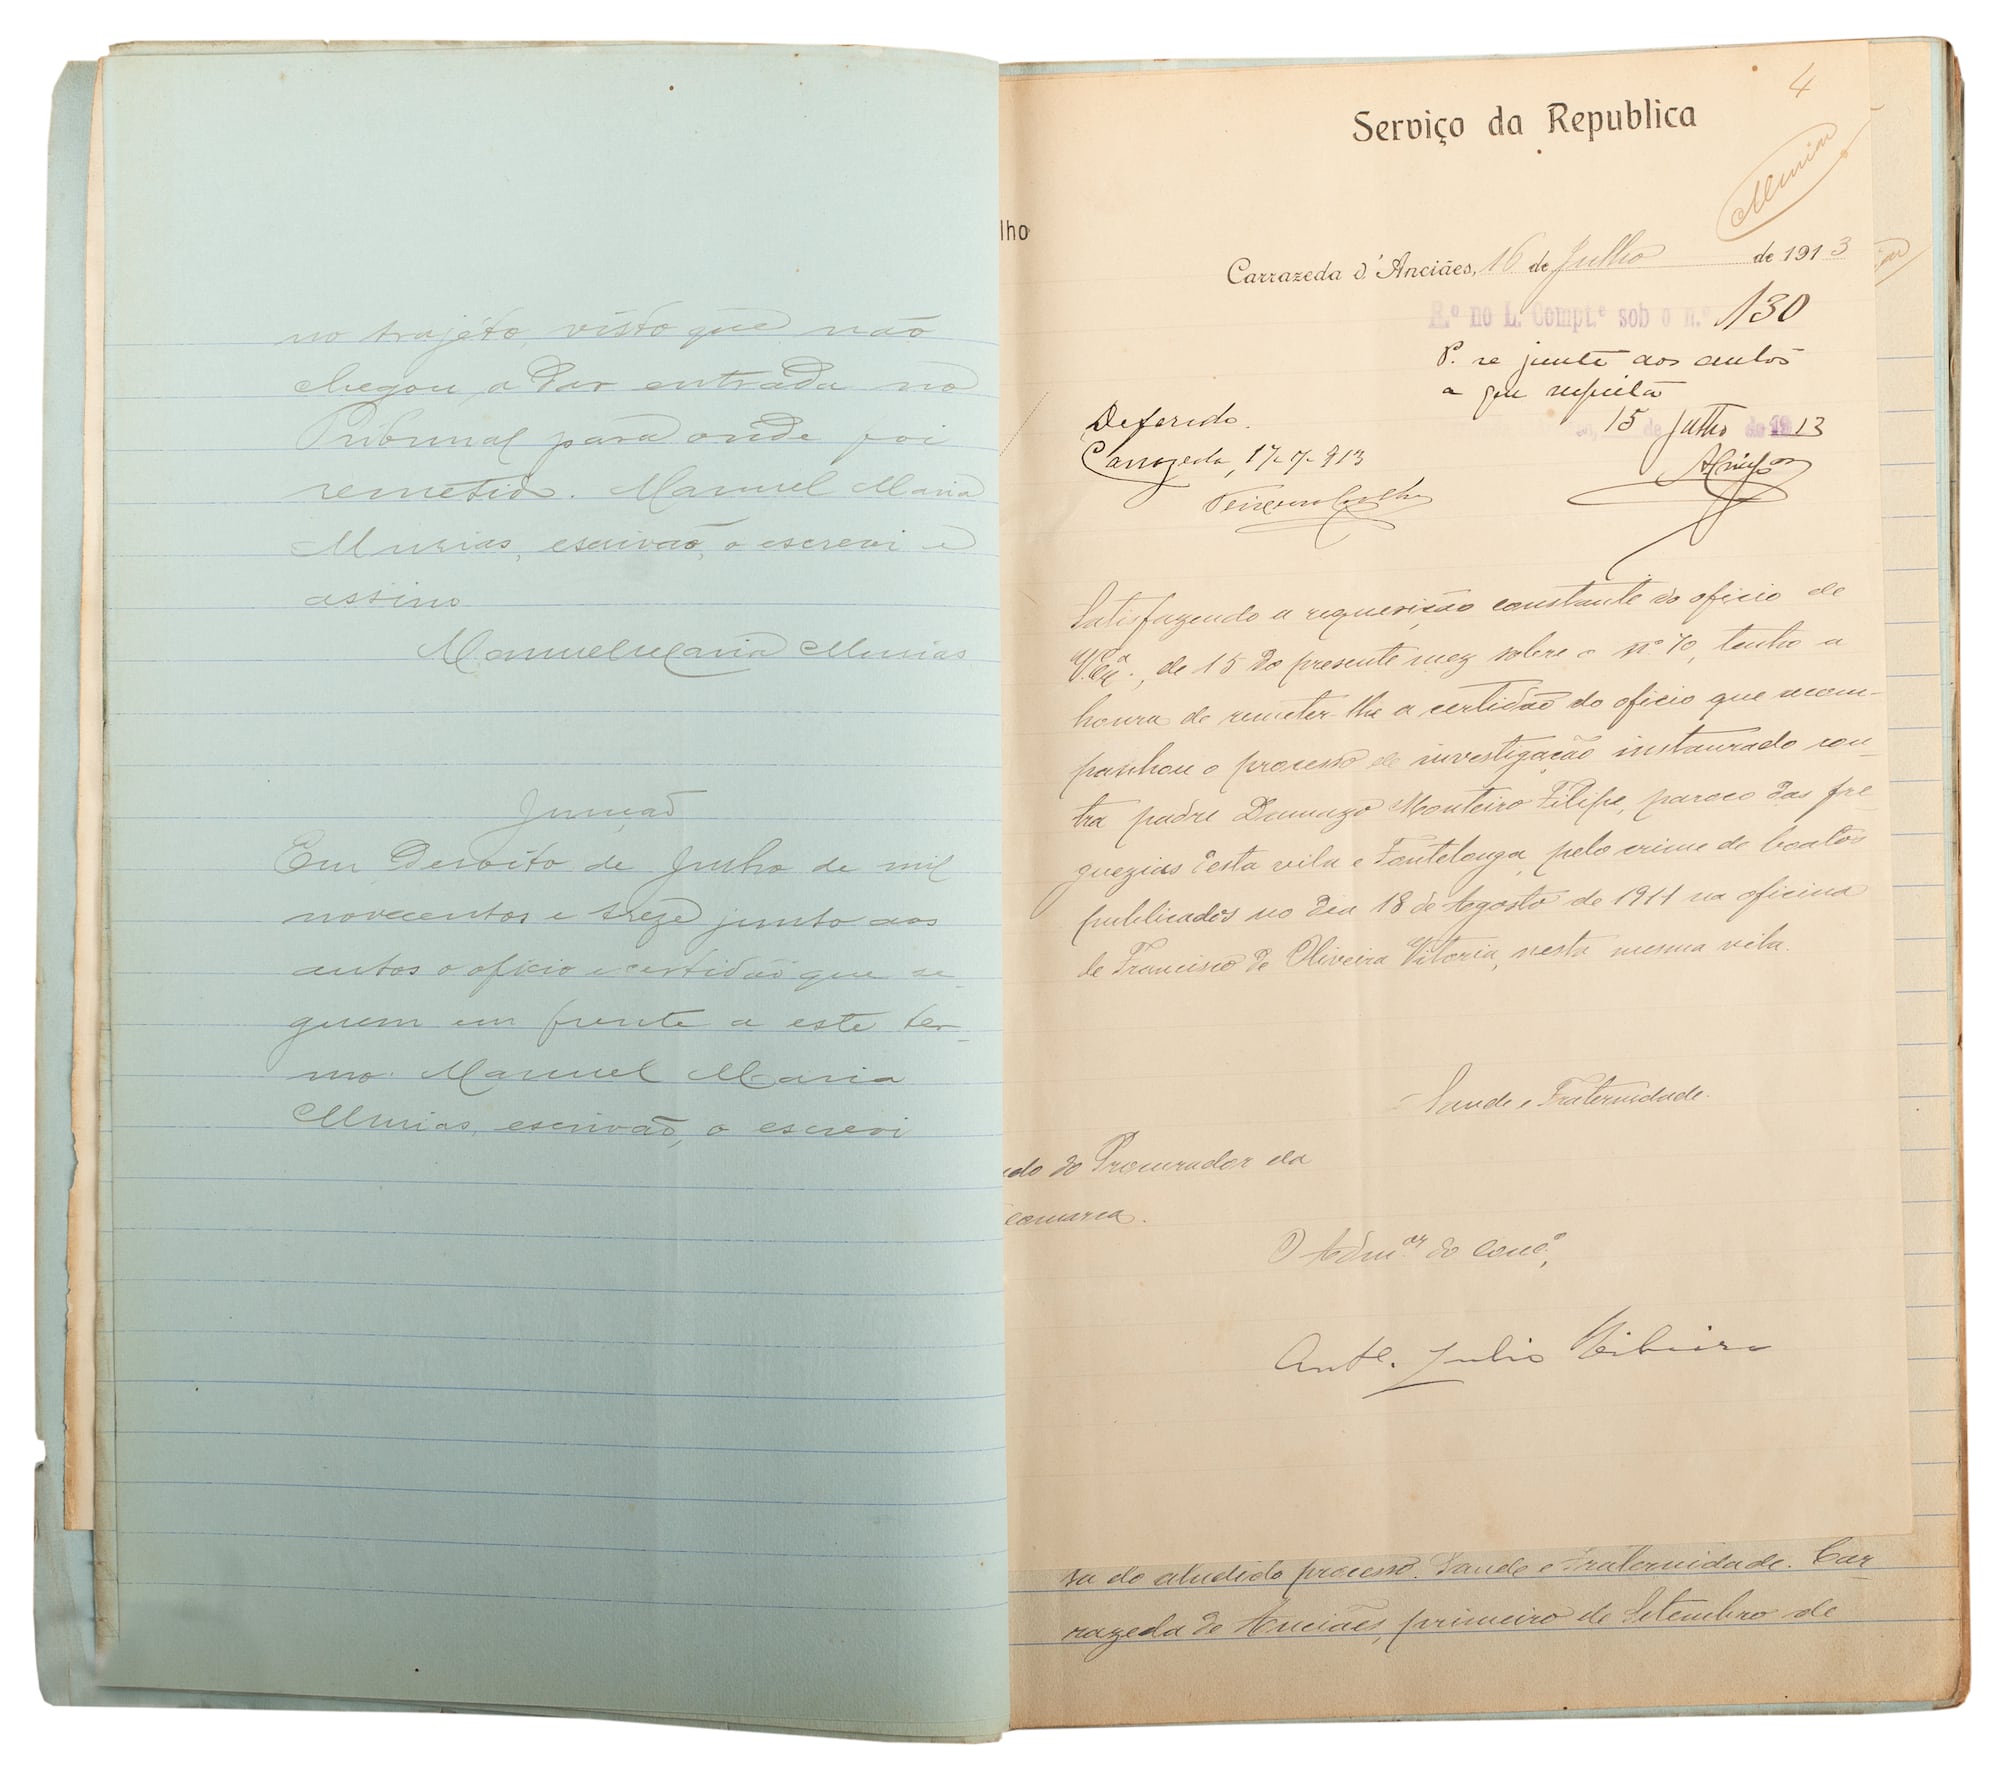 no trajéto, visto que não
chegou a dar entrada no
Tribunal para onde foi
remetido. Manuel Maria
Murias, escrivão, o escrevi e
assino
Manuel Maria Murias
Junção
Em desoito de Julho de mil
novecentos e treze junto aos
autos o oficio e certidão que se-
guem em frente a este ter-
mo. Manuel Maria
Murias, escrivão, o escrevi
4
Serviço da Republica
Murias
lho
Carrazeda d'Anciães, 16 de Julho de 1913
R.º no L. Compt.e sob o n.º 130
P. se junte aos autos
a que respeita
15 Julho 1913
Deferido.
Carrazeda, 17-7-913
Teixeira Coelho
Satisfazendo a requesição constante do oficio de
V. Ex.ª, de 15 do presente mez sobre o nº 70, tenho a
honra de remeter-lhe a certidão do oficio que acom-
panhou o processo de investigação instaurado con-
tra padre Damazo Monteiro Filipe, paroco das fre
guezias desta vila e Fontelonga, pelo crime de boatos
publicados no dia 18 de Agosto de 1911 na oficina
de Francisco de Oliveira Vitoria, nesta mesma vila.
Saude e Fraternidade.
do do Procurador da
comarca.
O Adm.or do Conc.º,
Antº. Julio Ribeiro
sa do aludido processo. Saude e Fraternidade. Car
razeda de Anciães, primeiro de Setembro de